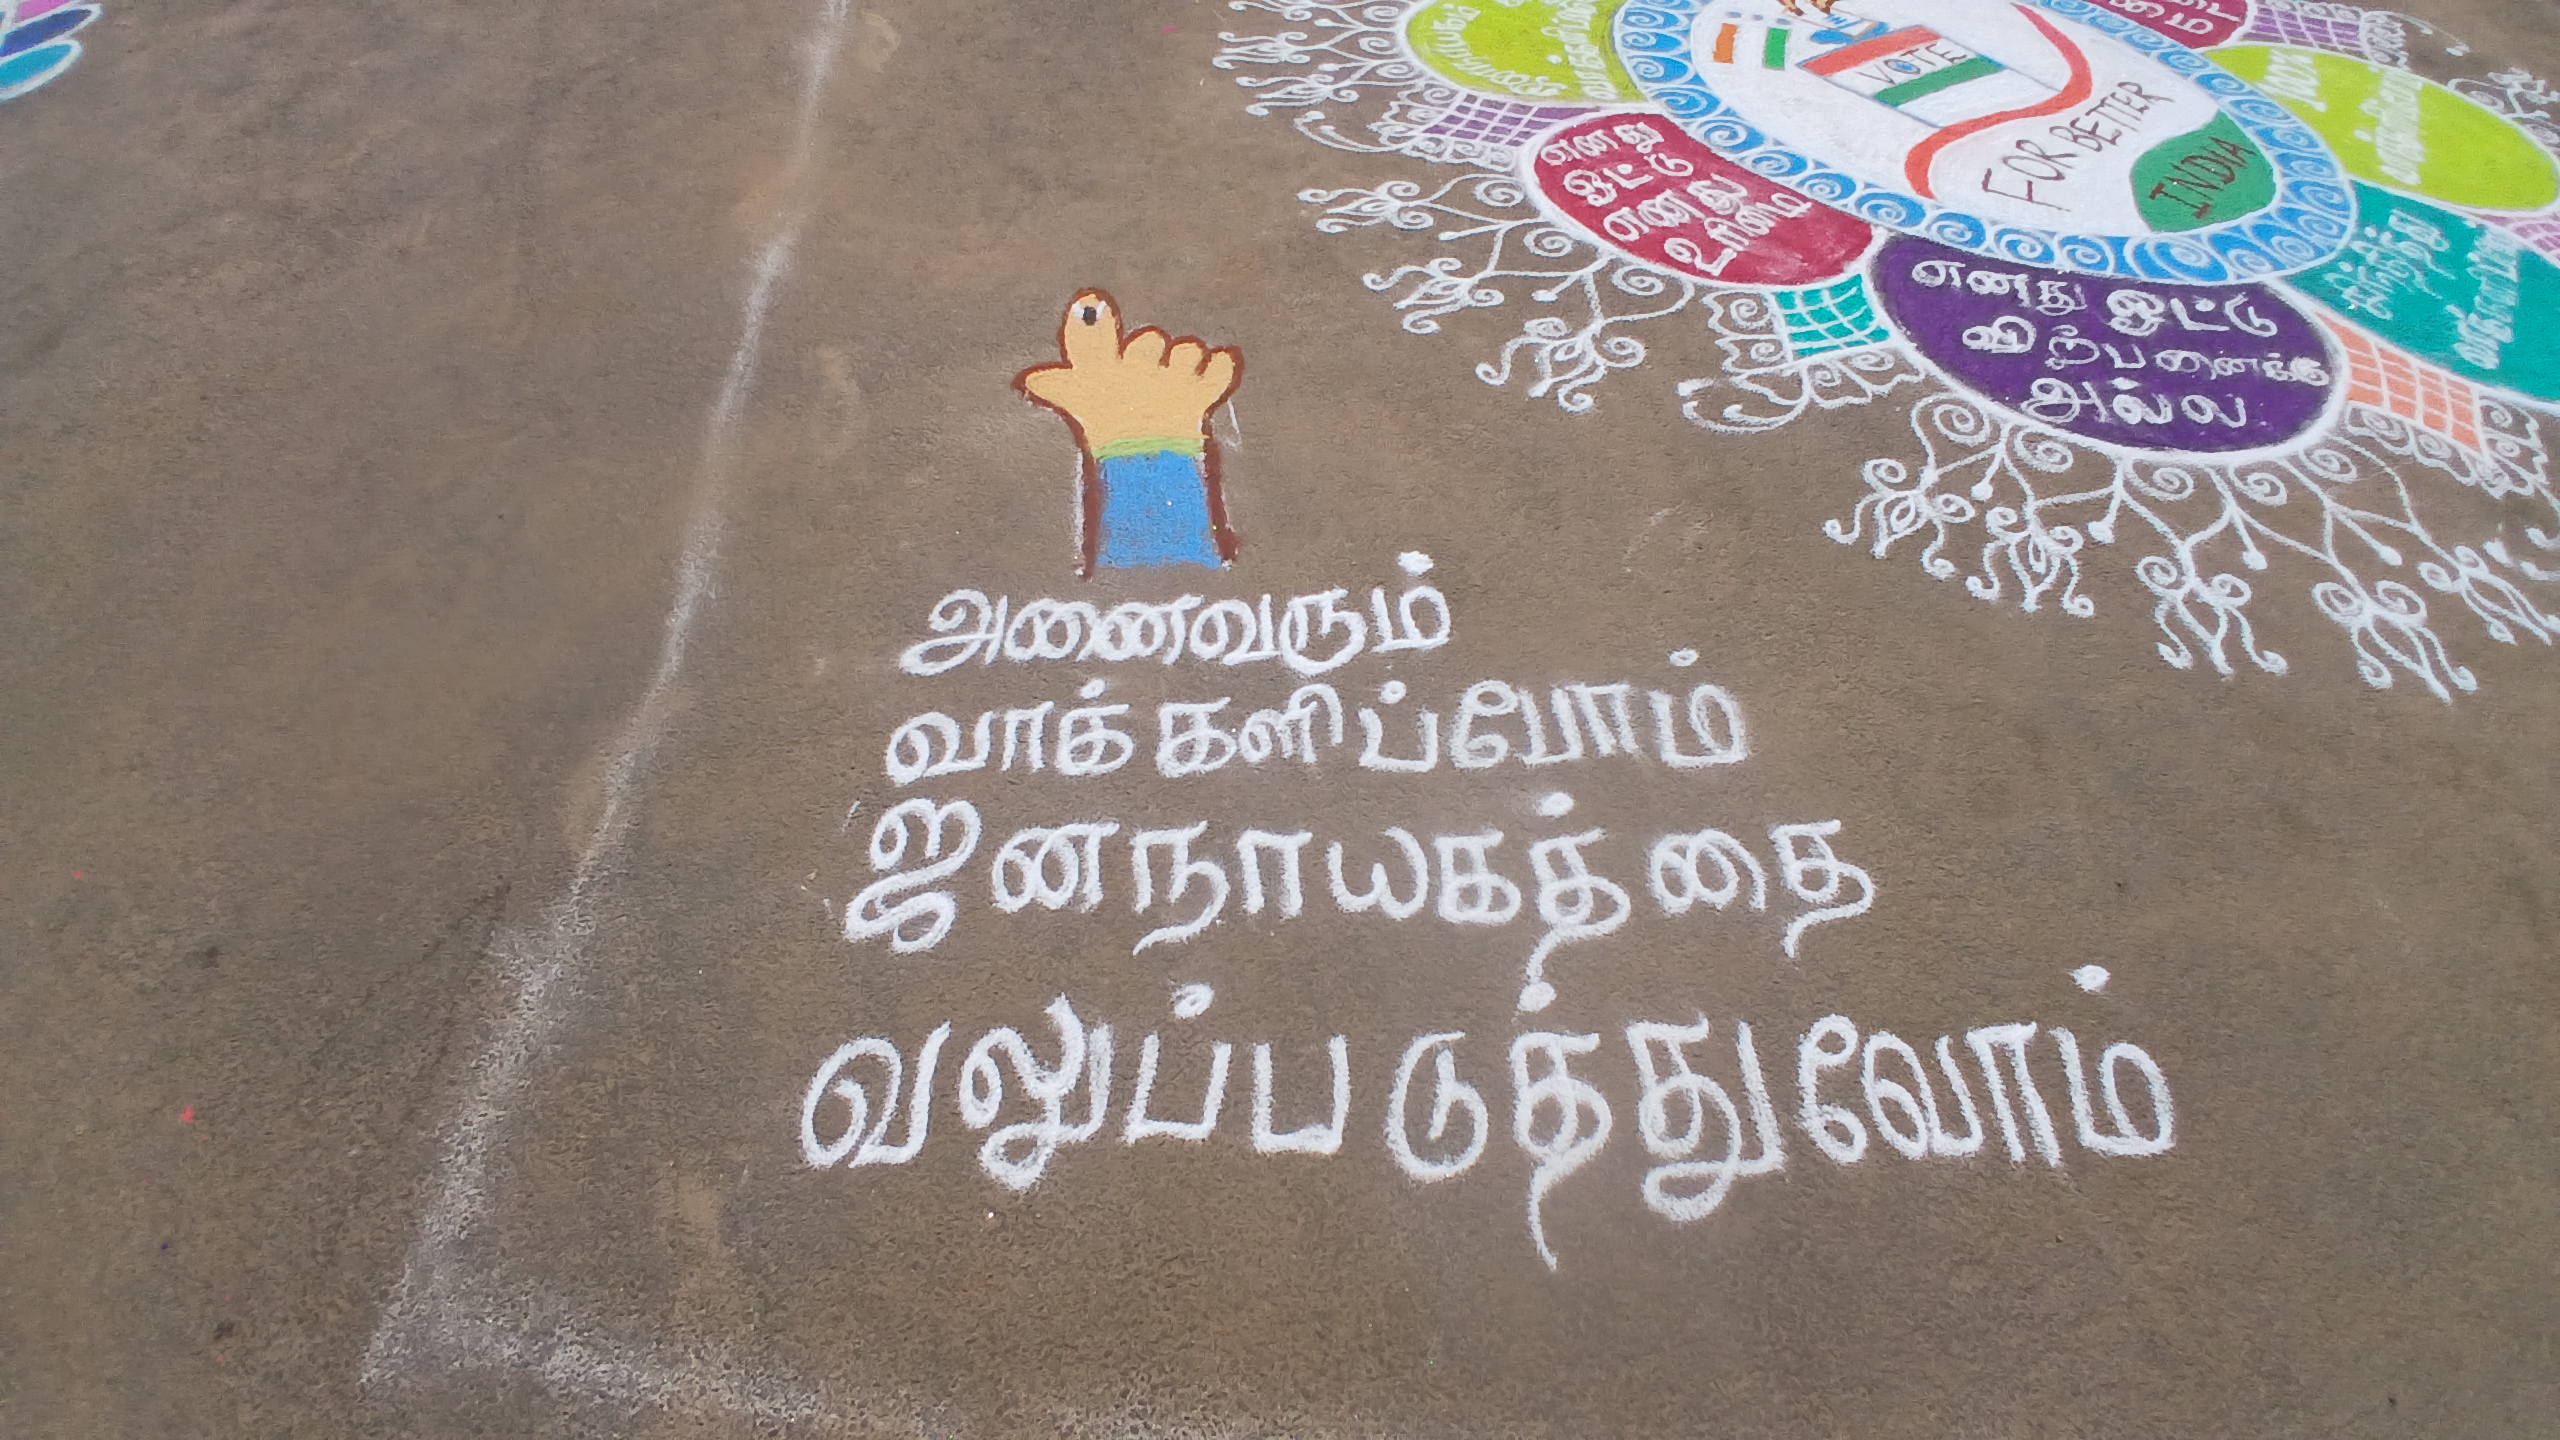 VOTE
FOR BETTER
INDIA
எனது
ஓட்டு
எனது
உரிமை
எனது ஓட்டு
விற்பனைக்கு
அல்ல
100%
அனைவரும்
வாக்களிப்போம்
ஜனநாயகத்தை
வலுப்படுத்துவோம்